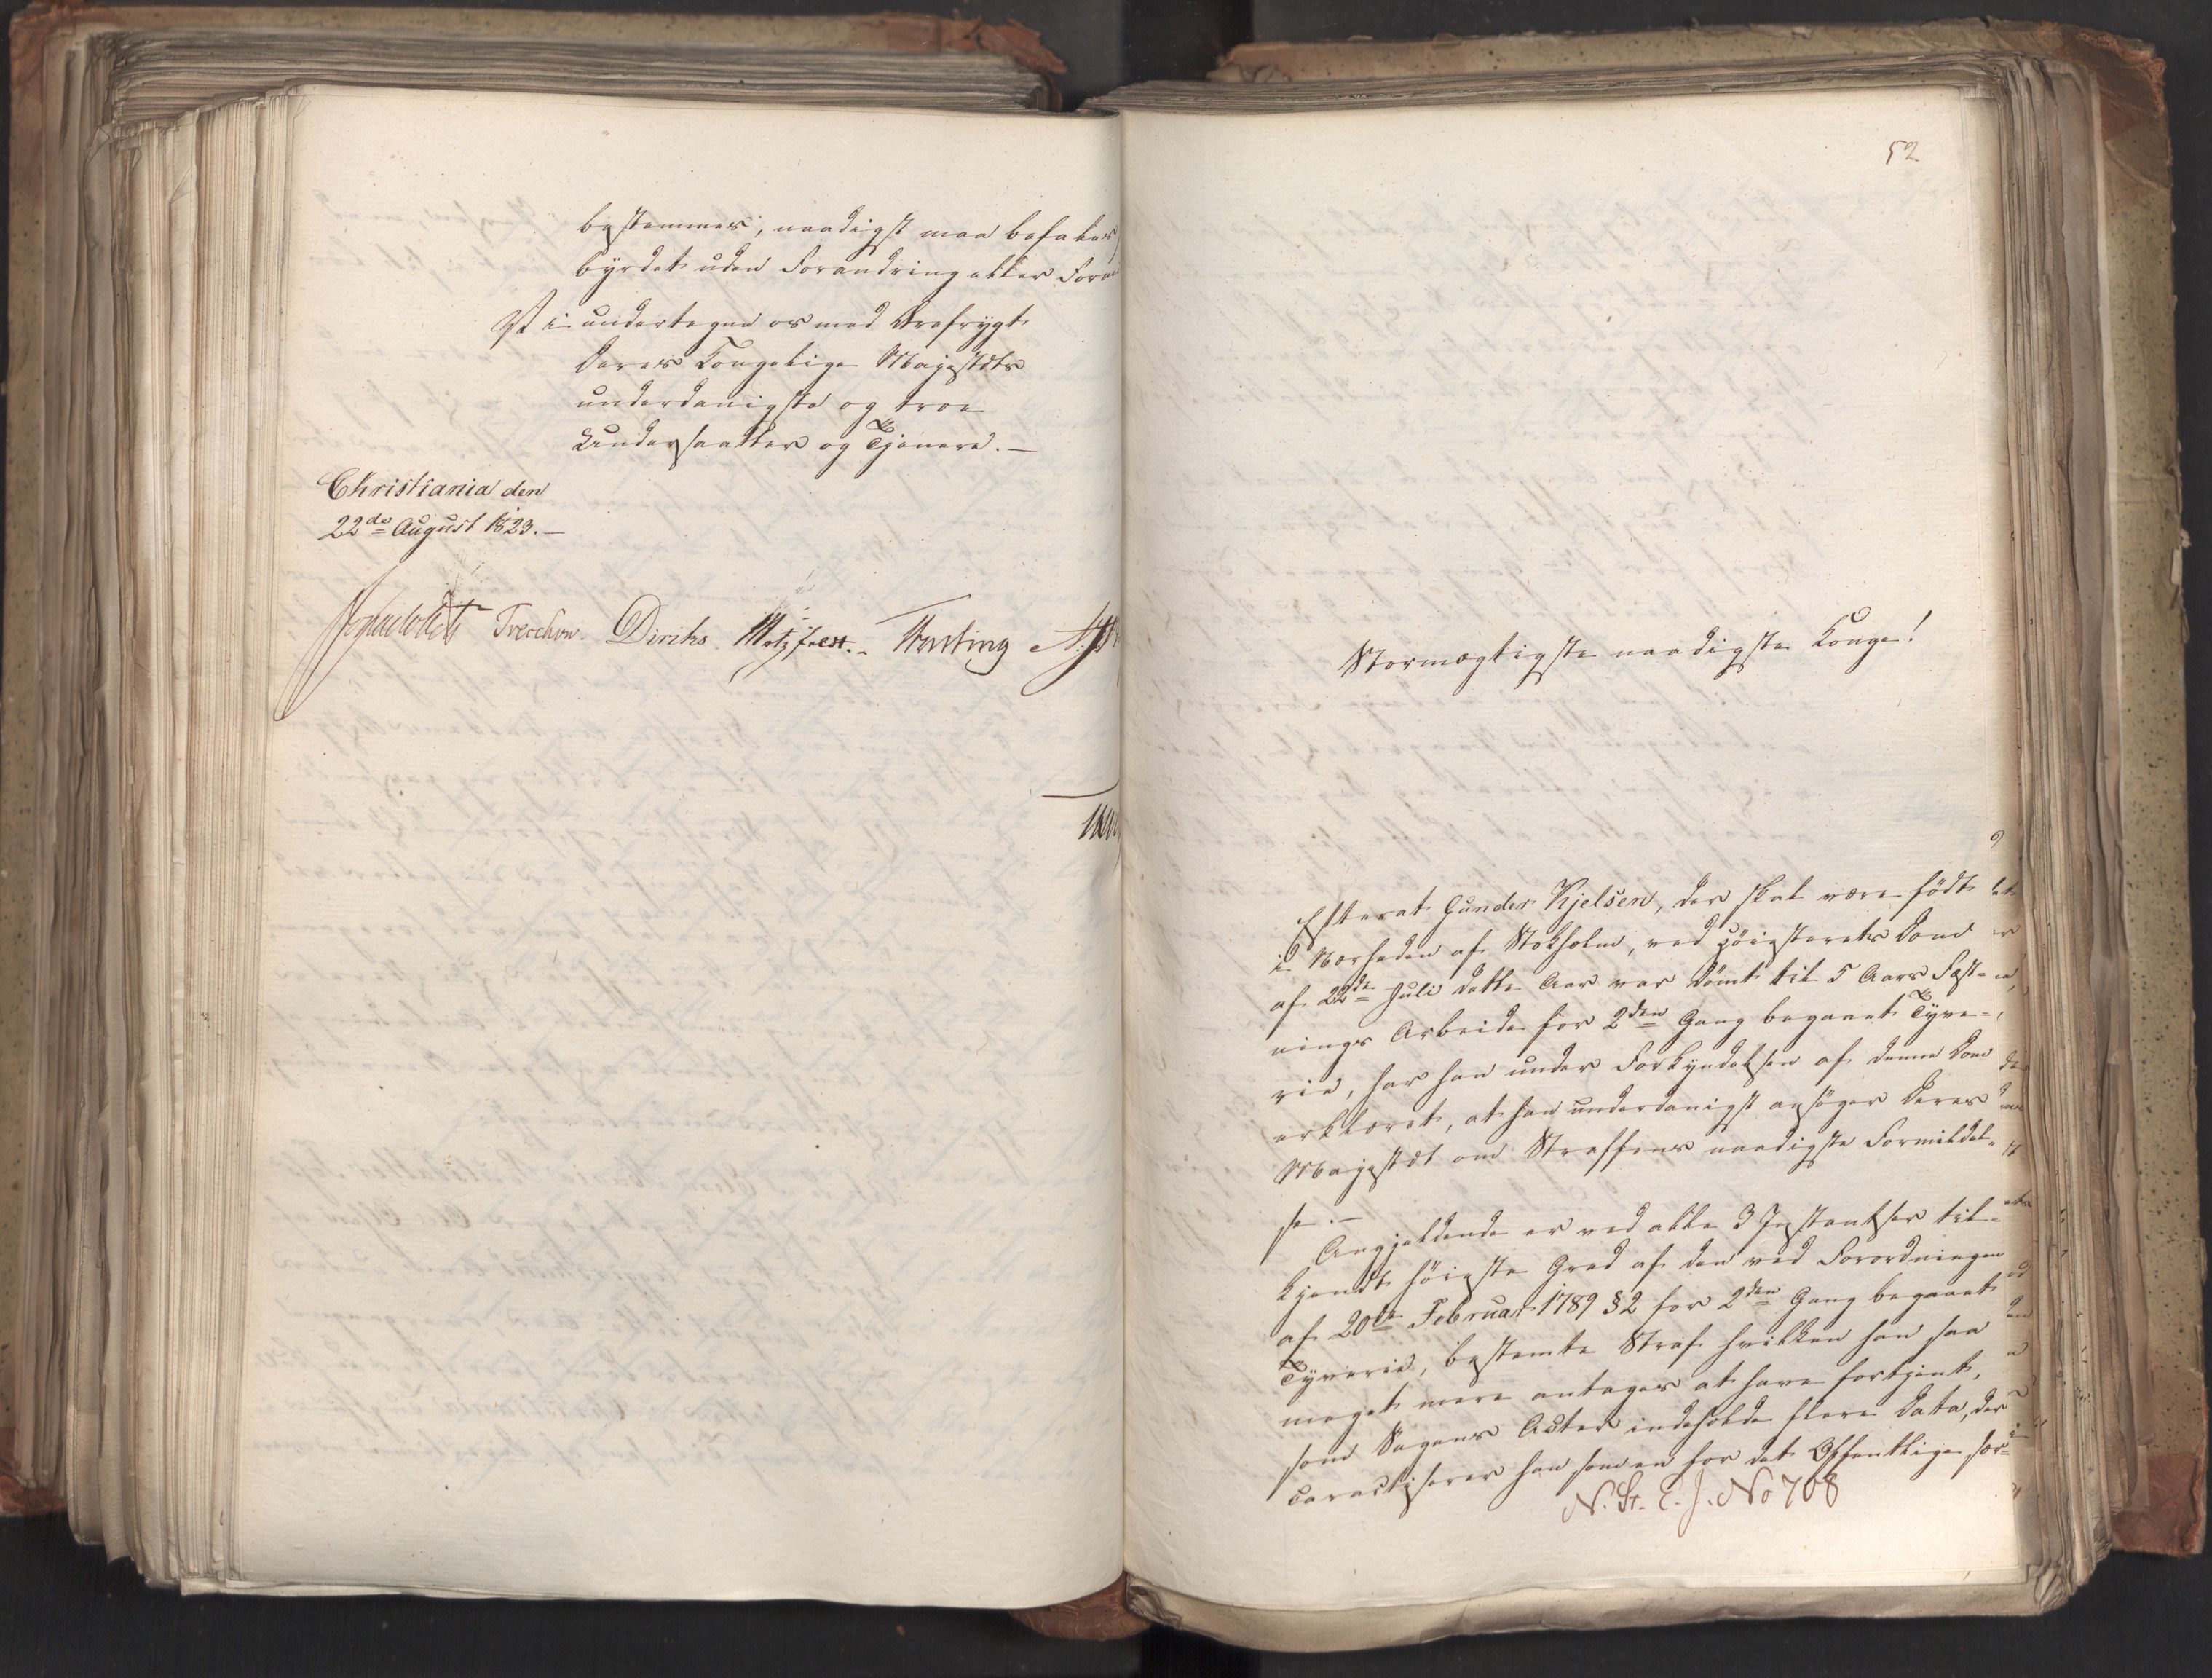 bestemmes, naadigst maa befales
byrdet uden Forandring eller Form
Vi undertegne os med Ærefrygt
Deres Kongelige Majestæts
underdanigste og troe
Undersaatter og Tjenere.—
Christiania den
22de August 1823.—
Treschow. Diriks. Motzfeldt.- Fasting
52
Stormægtigste naadigste Konge!
Efterat Gunder Kjelsen, der skal være födt
i Nærheden af Stokholm, ved Höiesterets Dom
af 22de Juli dette Aar var dömt til 5 Aars Fæst-
nings Arbeide for 2den Gang begaaet Tyve-
rie, har han under Forkyndelsen af denne Dom
erklæret, at han underdanigst ansöger Deres
Majestæt om Straffens naadigste Formildel-
se.—
Angjeldende er ved alle 3 Instantser til-
kjendt höieste Grad af den ved Forordningen
af 20de Februar 1789 § 2 for 2den Gang begaaet
Tyverie, bestemte Straf hvilken han saa
meget mere antages at have fortjent,
som Sagens Acter indeholde flere Data, der
caracteriserer ham som en for det Offentlige sær-
N. St. E. J. No 708